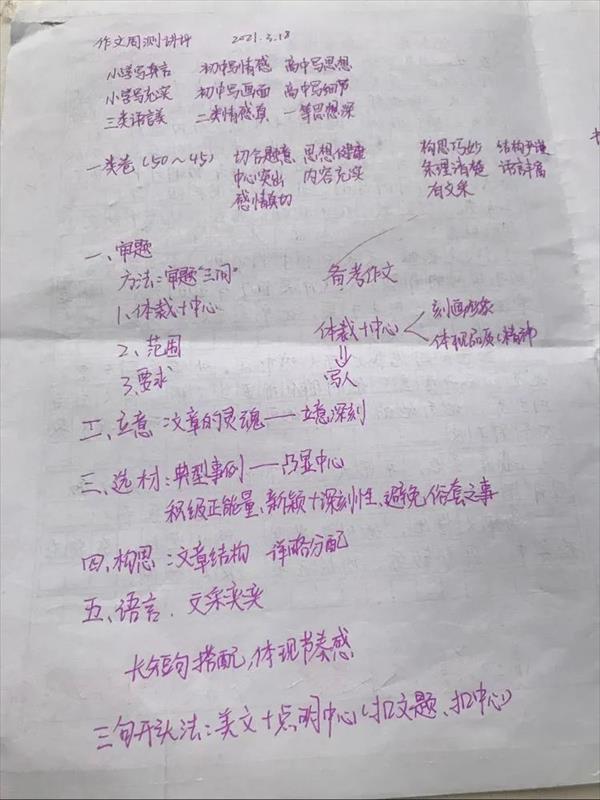 作文周测讲评 2021.3.18
小学写真言 初中写情感 高中写思想
小学写充实 初中写画面 高中写细节
三类语言美 二类情感真 一等思想深
一类卷(50～45) 切合题意 思想健康 构思巧妙 结构严谨
中心突出 内容充实 条理清楚 语言丰富
感情真切 有文采
一、审题
方法:审题"三问" 备考作文
1、体裁+中心 刻画形象
体裁+中心 体现品质、精神
2、范围
3、要求 写人
二、立意:文章的灵魂——立意深刻
三、选材:典型事例——凸显中心
积极正能量、新颖+深刻性、避免俗套之事
四、构思:文章结构 详略分配
五、语言.文采奕奕
长短句搭配,体现节奏感
三句开头法:美文+点明中心(扣文题、扣中心)